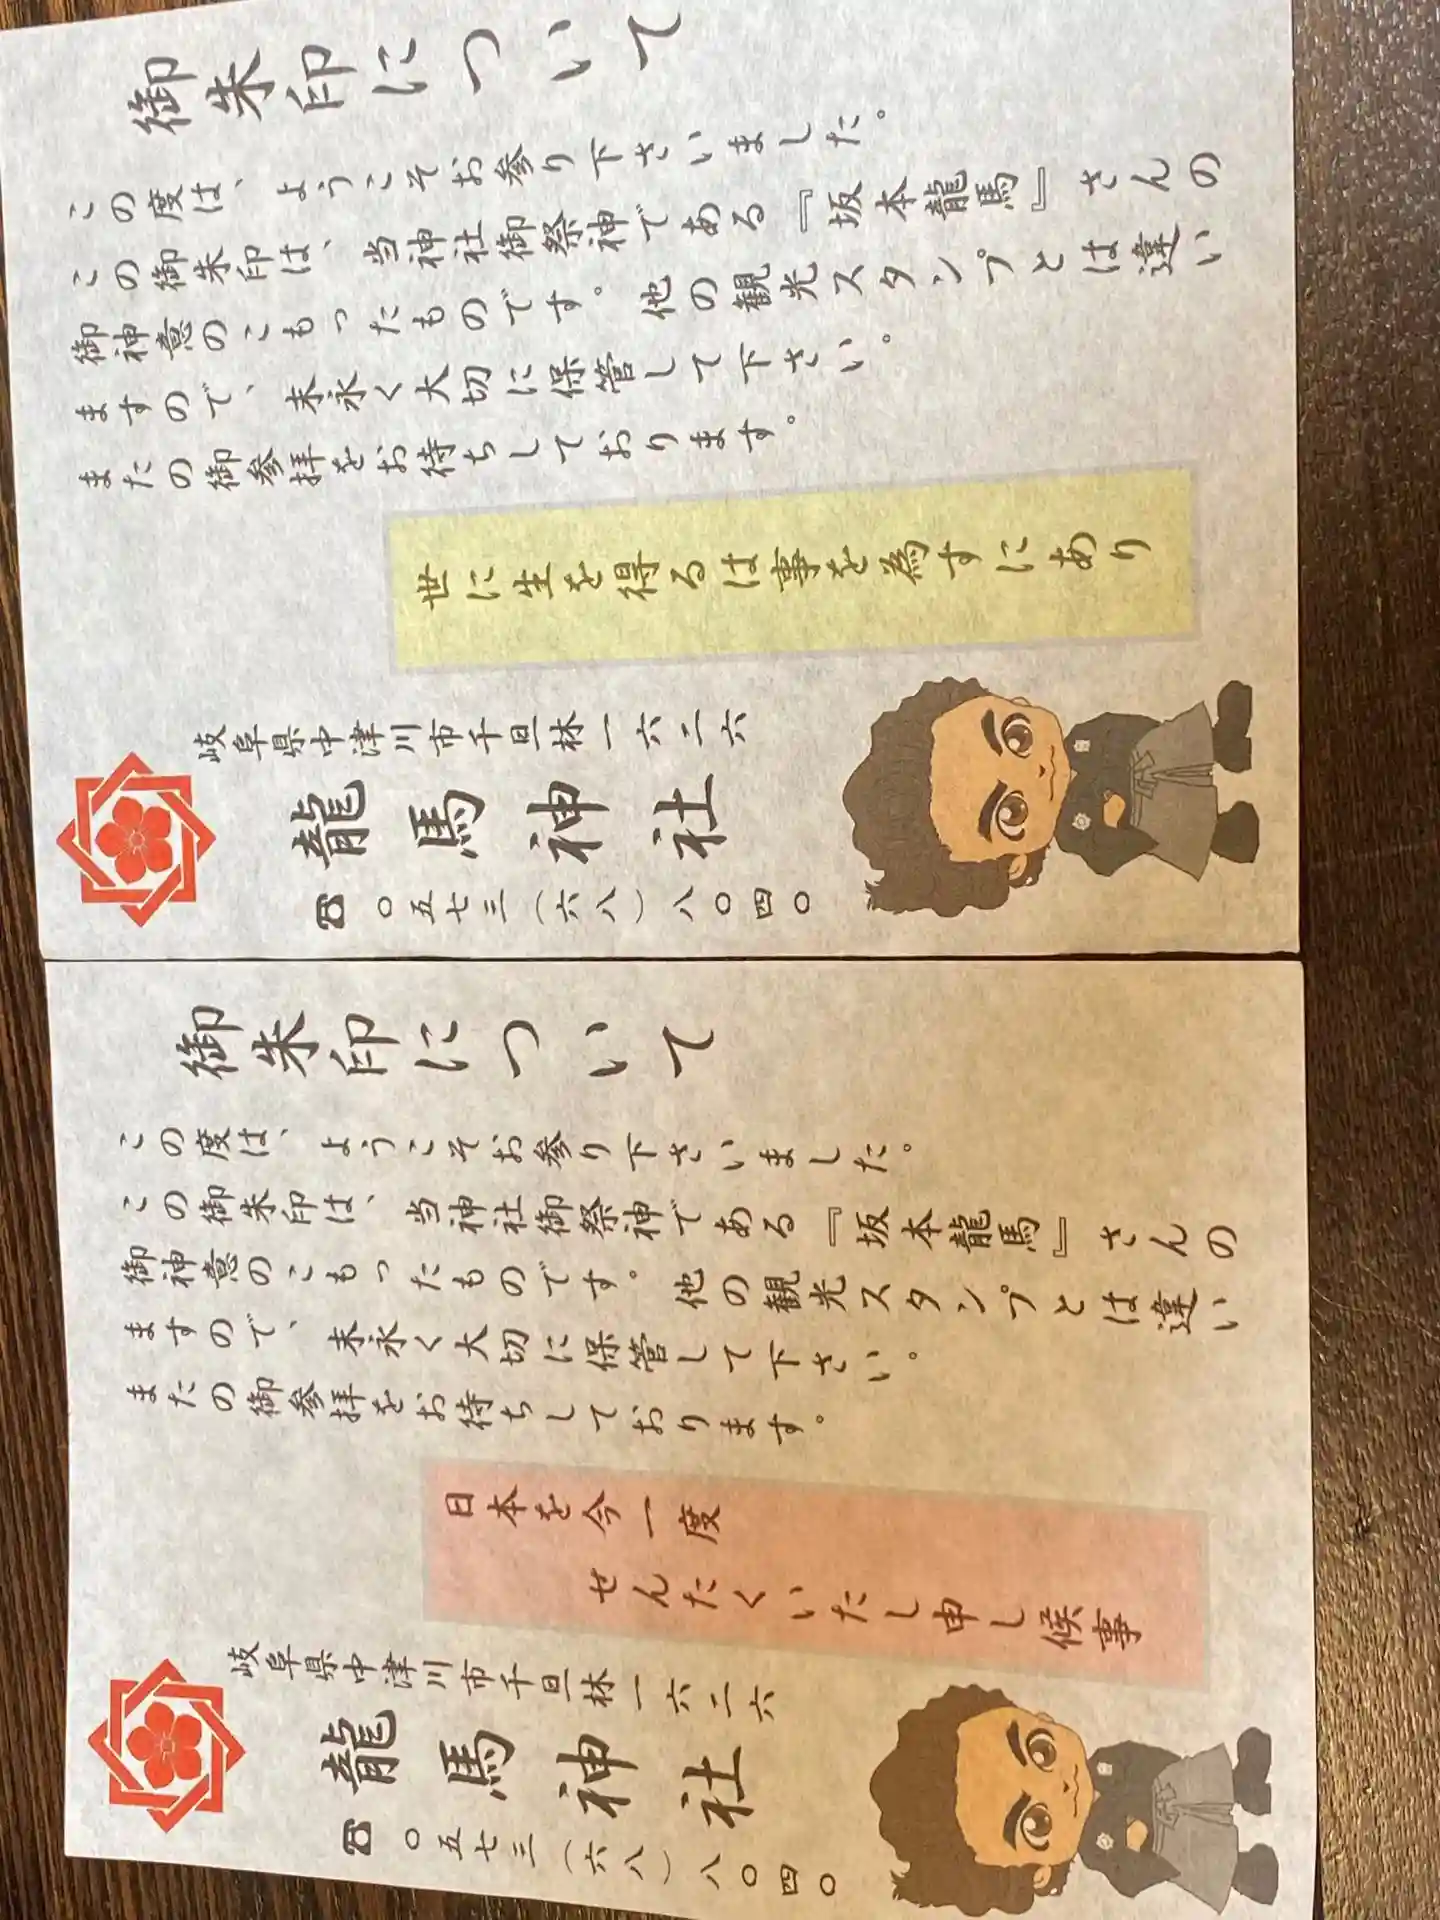 御朱印について
この度は、ようこそお参り下さいました。
この御朱印は、当神社御祭神である『坂本龍馬』さんの
御神意のこもったものです。他の観光スタンプとは違い
ますので、末永く大切に保管して下さい。
またの御参拝をお待ちしております。
世に生を得るは事を為すにあり
岐阜県中津川市千旦林一六二六
龍馬神社
☎〇五七三(六八)八〇四〇
御朱印について
この度は、ようこそお参り下さいました。
この御朱印は、当神社御祭神である『坂本龍馬』さんの
御神意のこもったものです。他の観光スタンプとは違い
ますので、末永く大切に保管して下さい。
またの御参拝をお待ちしております。
日本を今一度
せんたくいたし申し候事
岐阜県中津川市千旦林一六二六
龍馬神社
☎〇五七三(六八)八〇四〇